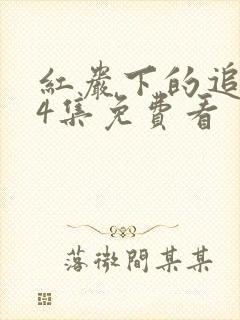 紅巖下的追
4集免費看
落微間某某